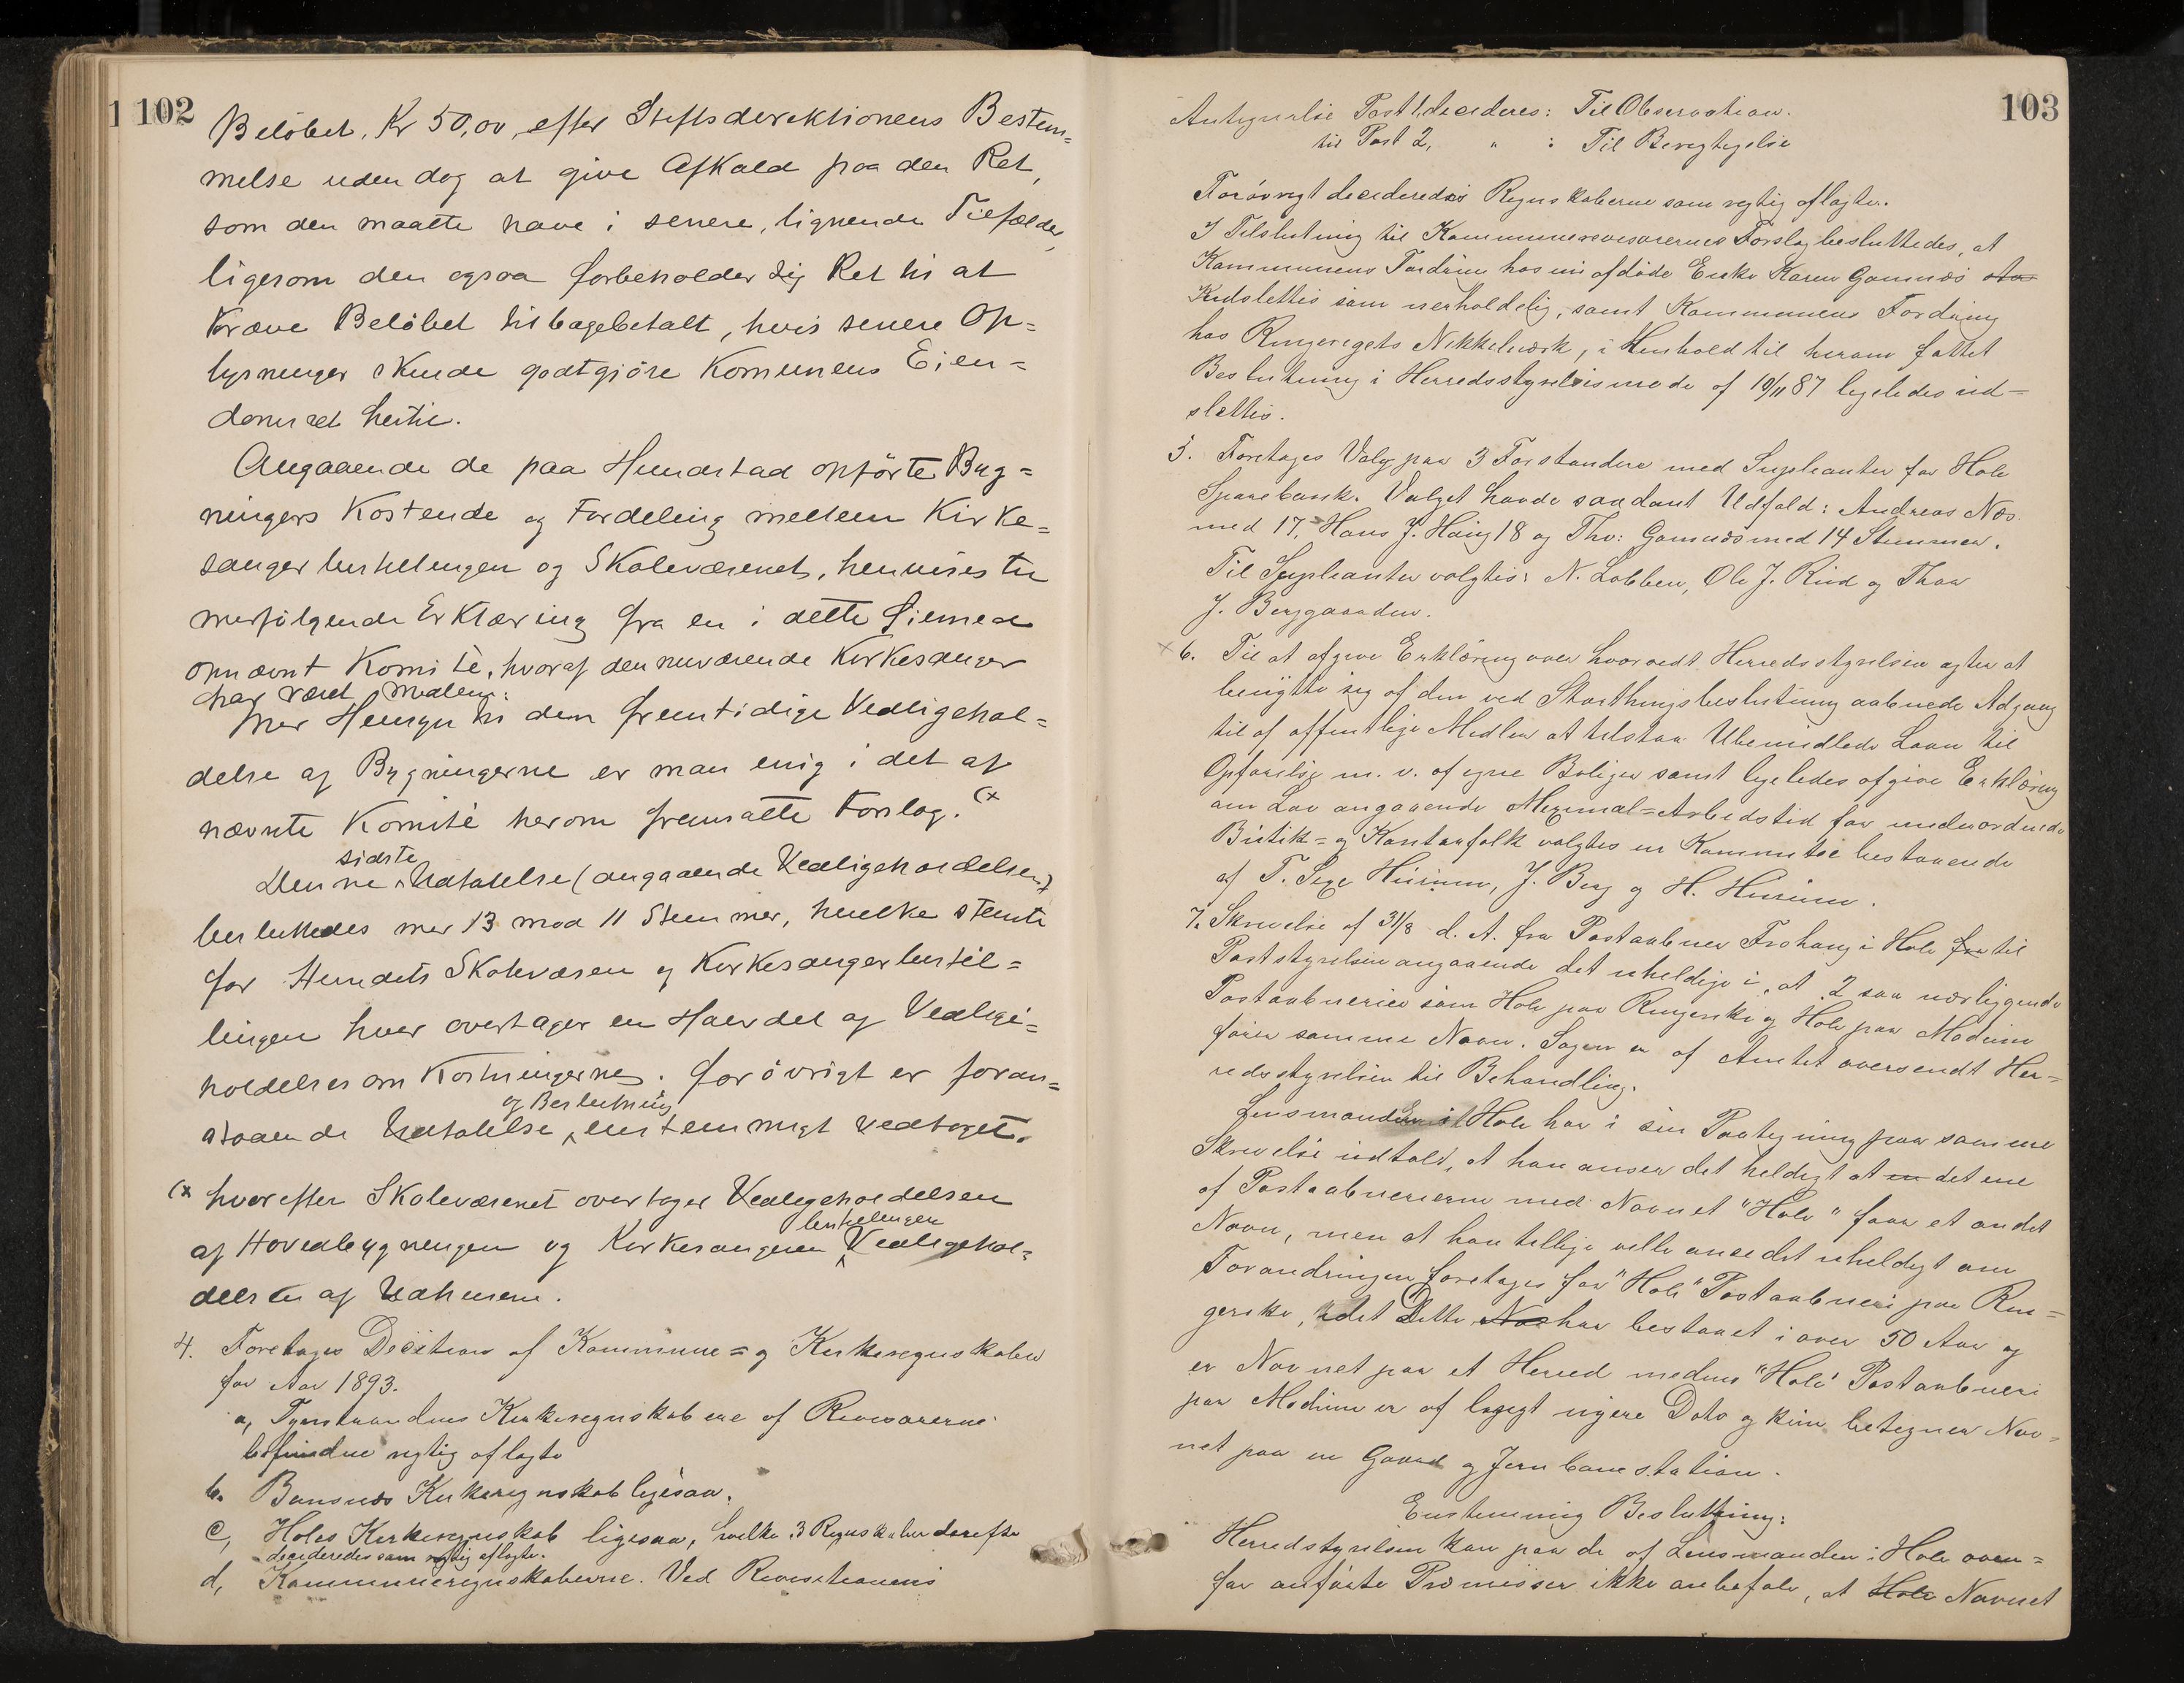 1 102
Beløbet, Kr 50,00, efter Stiftsdirektionens Bestem=
melse uden dog at give Afkald paa den Ret,
som den maatte have i senere, lignende Tilfælde,
ligesom den ogsaa forbeholder sig Ret til at
kræve Beløbet tilbagebetalt, hvis senere Op=
lysninger skulde godtgjöre Komunens Eien=
domsret hertil.
Angaaende de paa Hundstad opförte Byg=
ningers Kostende og Fordeling mellem Kirke=
sangerbestillingen og Skolevæsenet, henvises til
nærfölgende Erklæring fra en i dette Øiemed
opnævnt Komitè, hvoraf den nuværende Kirkesanger
har været Medlem:
Med Hensyn til den fremtidige Vedligehol=
delse af Bygningerne er man enig i det af
nævnte Komitè herom fremsatte Forslag. (x
Denne sidste Udtalelse (angaaende Vedligeholdelsen)
besluttedes med 13 mod 11 Stemmer, hvilke stemte
for Herredets Skolevæsen og Kirkesangerbestil=
lingen hver overtager en Halvdel af Vedlige=
holdelsesomkostningerne. Forövrigt er foran=
staaende Udtalelse og Beslutning enstemmigt vedtaget.
(x hvorefter Skolevæsenet overtager Vedligeholdelsen
af Hovedbygningen og Kirkesangerbestillingen Vedligehol=
delsen af Udhusene.
4. Foretages Decition af Kommune= og Kirkeregnskaber
for Aar 1893.
a, Tyristrandens Kirkeregnskab ere af Revisorerne
befundne rigtig aflagte
b. Bønsnæs Kirkeregnskab ligesaa.
c, Holes Kirkeregnskab ligesaa, hvilke 3 Regnskaber derefter
decideredes som rigtig aflagte.
d, Kommuneregnskaberne. Ved Revisitionens
103
Antegnelse Post 1, decideres: Til Observation.
til Post 2, " : Til Berigtigelse
Forövrigt decideredes Regnskaberne som rigtig aflagte.
I Tilslutning til Kommunerevisorernes Forslag besluttedes, at
Kommunens Fordring hos nu afdöde Enke Karen Gomnæs
udslettes som uerholdelig, samt Kommunens Fordring
hos Ringeriges Nikkelværk, i Henhold til herom fattet
Beslutning i Herredsstyrelsesmöde af 10/11 87 ligeledes ud=
slettes.
5. Foretages Valg paa 3 Forstandere med Supleanter for Hole
Sparebank. Valget havde saadant Udfald: Andreas Næs
med 17, Hans J. Høng 18 og Thv: Gomnæs med 14 Stemmer.
Til Supleanter valgtes: N. Løbben, Ole J. Rud og Thor
J. Berggaarden.
x 6. Til at afgive Erklæring over hvorvidt Herredsstyrelsen agter at
benytte sig af den ved Storthingsbeslutning aabnede Adgang
til af offentlige Midler at tilstaa Ubemidlede Laan til
Opförelse m. v. af egne Boliger samt ligeledes afgive Erklæring
om Lov angaaende Maximal=Arbeidstid for underordnede
Butik= og Kontorfolk valgtes en Kommitee bestaaende
af T. Sexe Hurum, J. Berg og H. Hurum.
7. Skrivelse af 31/8 d. A. fra Postaabner Frohaug i Hole fra til
Poststyrelsen angaaende det uheldige i, at 2 saa nærliggende
Postaabnerier som Hole paa Ringerike og Hole paa Modum
förer samme Navn. Sagen er af Amtet oversendt Her=
redsstyrelsen til Behandling.
Lensmanden i Hole har i sin Paategning paa samme
Skrivelse udtalt, at han anser det heldigt at en det ene
af Postaabnerierne med Navnet "Hole" faar et andet
Navn, men at han tillige vilde anse det uheldigt om
Forandringen foretages for "Hole" Postaabneri paa Rin=
gerike, idet Dette har bestaaet i over 50 Aar og
er Navnet paa et Herred medens "Hole" Postaabneri
paa Modum er af langt nyere Dato og kun betegner Nav=
net paa en Gaard og Jernbanestation.
Enstemmig Beslutning:
Herredsstyrelsen kan paa de af Lensmanden i Hole oven=
for anförte Præmisser ikke anbefale, at Hole Navnet